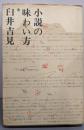 小説の
味わい方
臼井吉見